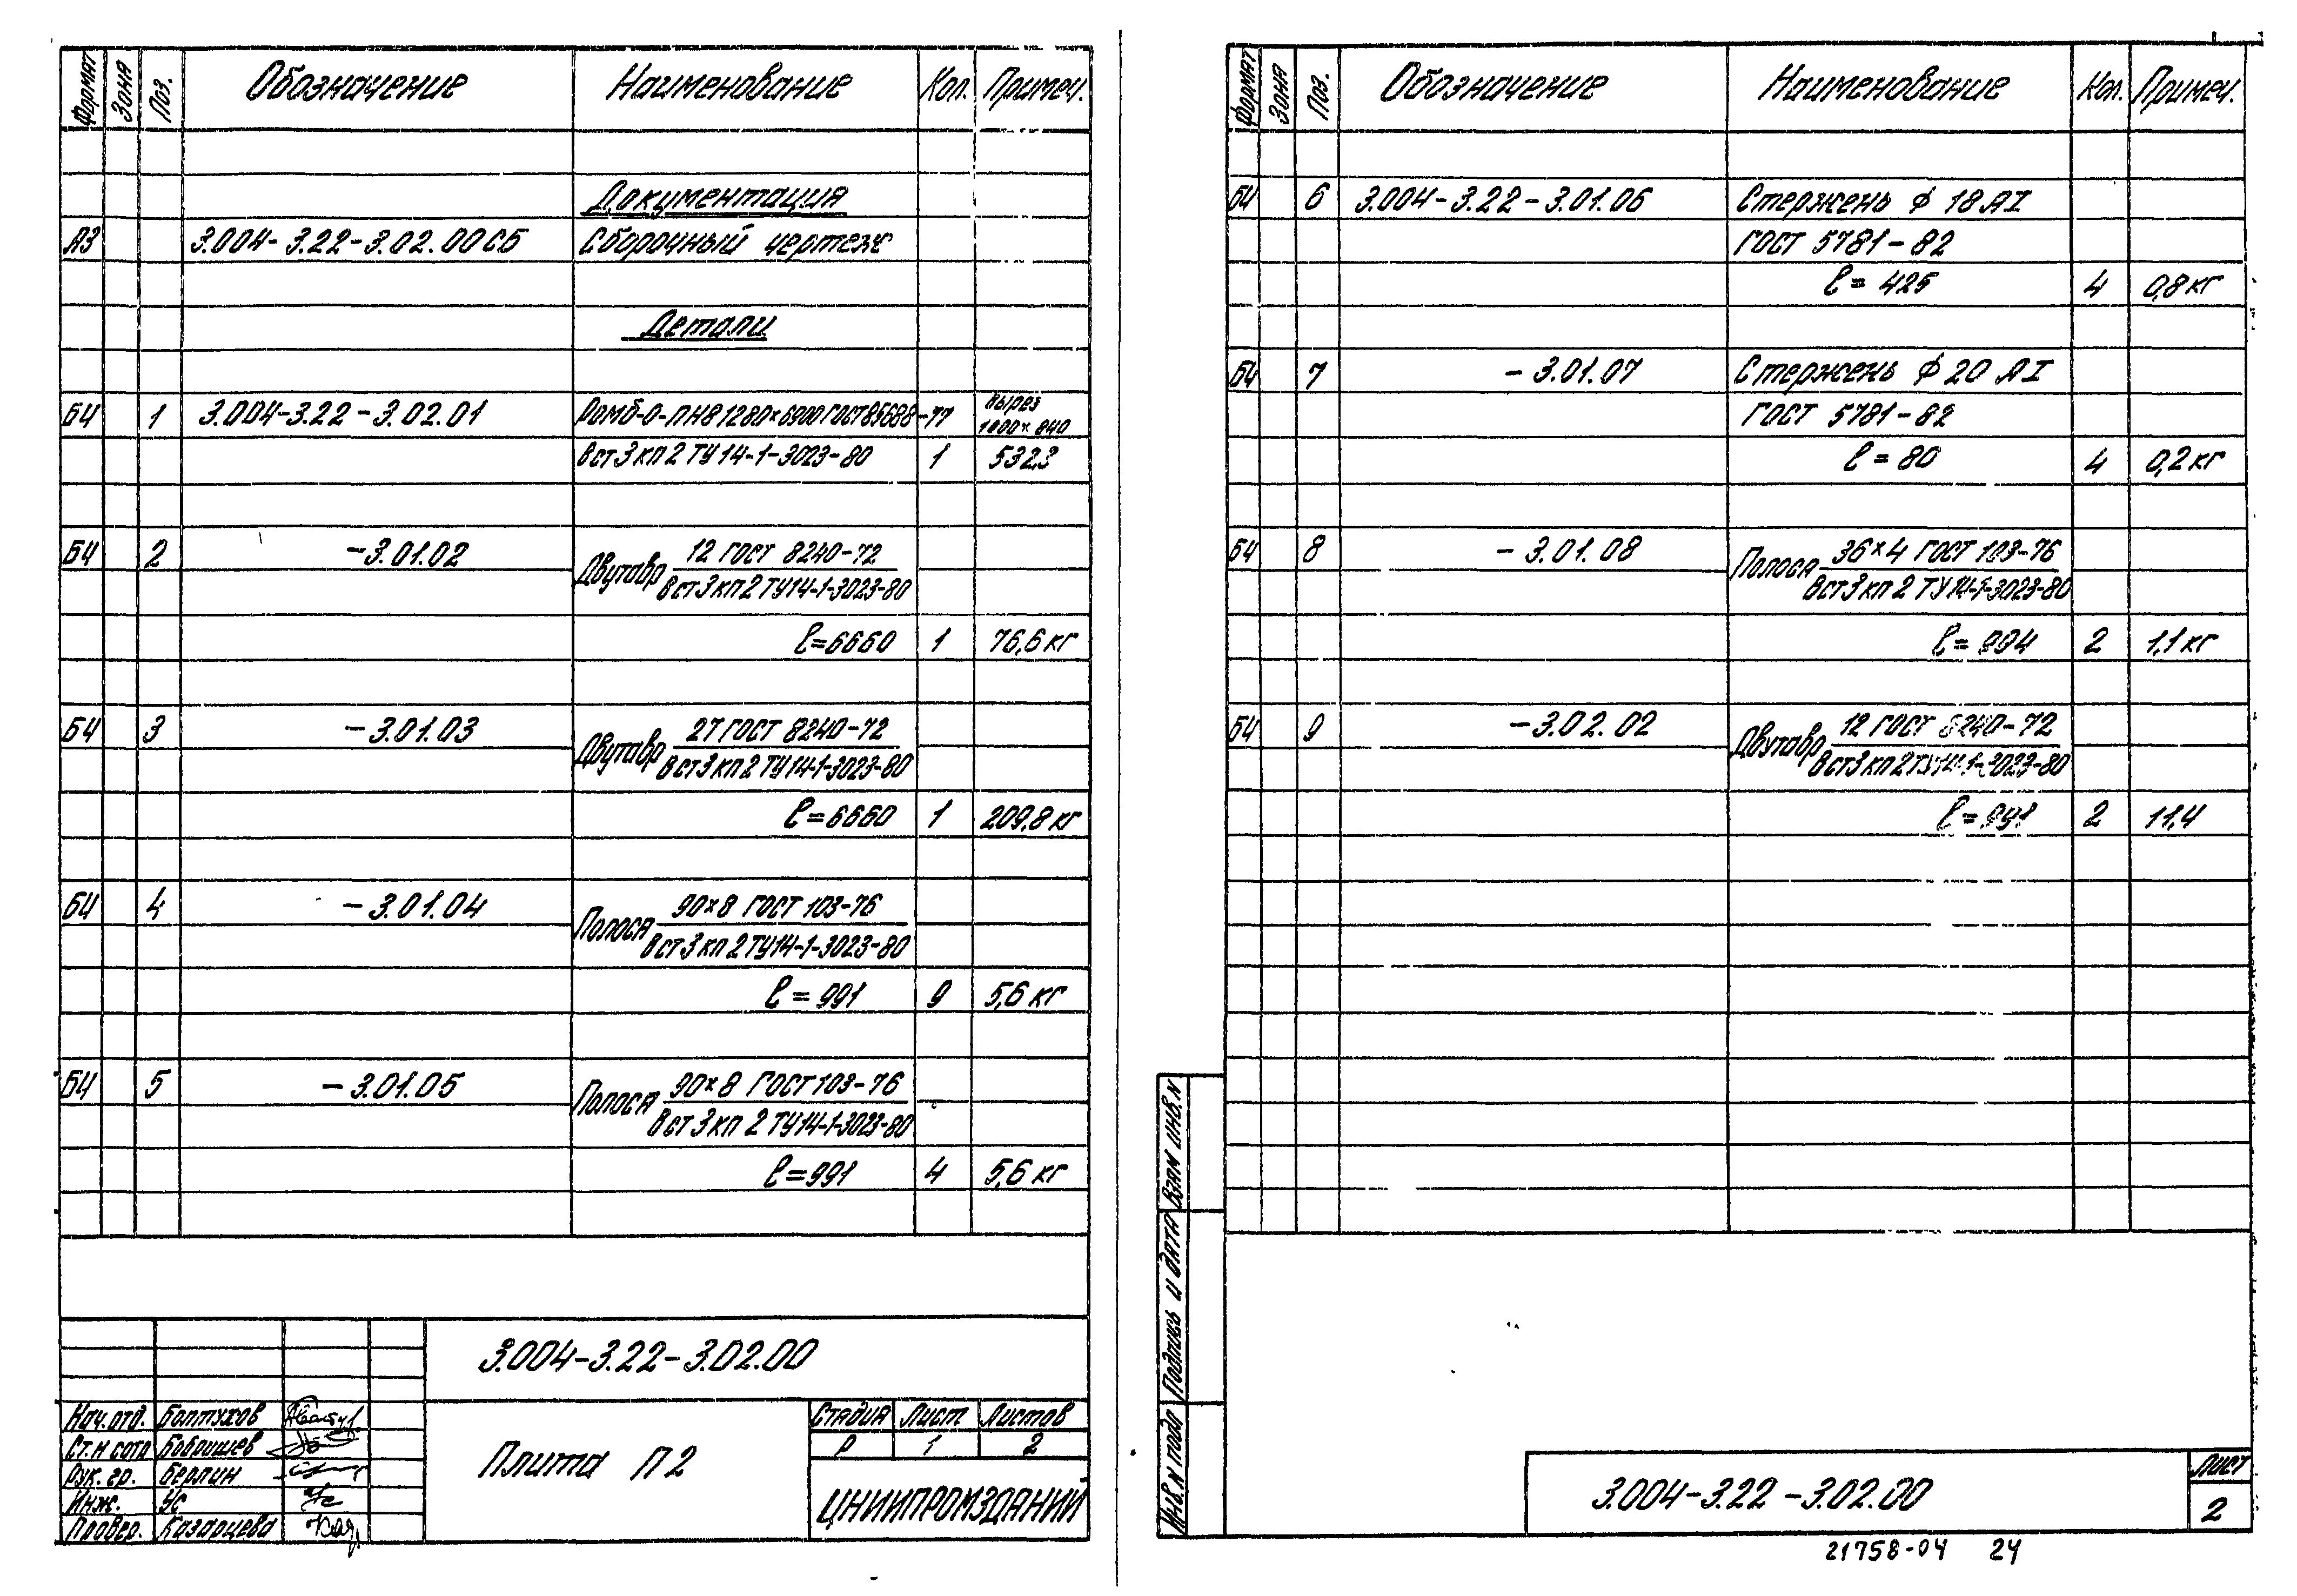 Формат Зона Поз. Обозначение Наименование Кол. Примеч.
Документация
А3 3.004-3.22-3.02.00СБ Сборочный чертеж
Детали
БЧ 1 3.004-3.22-3.02.01 Ромб-О-ПН8 1280×6900 ГОСТ85688-77 вырез 1800×840
Вст3кп2 ТУ14-1-3023-80 1 532,3
БЧ 2 -3.01.02 Двутавр 12 ГОСТ 8240-72
Вст3кп2ТУ14-1-3023-80
ℓ=6660 1 76,6кг
БЧ 3 -3.01.03 Двутавр 27 ГОСТ 8240-72
Вст3кп2ТУ14-1-3023-80
ℓ=6660 1 209,8кг
БЧ 4 -3.01.04 Полоса 90×8 ГОСТ 103-76
Вст3кп2ТУ14-1-3023-80
ℓ=991 9 5,6кг
БЧ 5 -3.01.05 Полоса 90×8 ГОСТ103-76
Вст3кп2ТУ14-1-3023-80
ℓ=991 4 5,6кг
3.004-3.22-3.02.00
Нач.отд. Болтухов
Ст.н сотр Бобришев
Рук.гр. Берлин
Инж. Ус
Провер. Казарцева
Плита П2
Стадия Лист Листов
Р 1 2
ЦНИИПРОМЗДАНИЙ
Формат Зона Поз. Обозначение Наименование Кол. Примеч.
БЧ 6 3.004-3.22-3.01.06 Стержень ф 18АI
ГОСТ 5781-82
ℓ=425 4 0,8кг
БЧ 7 -3.01.07 Стержень ф20 АI
ГОСТ 5781-82
ℓ=80 4 0,2кг
БЧ 8 -3.01.08 Полоса 36×4 ГОСТ 103-76
Вст3кп2 ТУ14-1-3023-80
ℓ=994 2 1,1кг
БЧ 9 -3.02.02 Двутавр 12 ГОСТ 8240-72
Вст3кп2ТУ14-1-3023-80
ℓ=991 2 11,4
Взам инв.N
Подпись и дата
Инв.N подл
3.004-3.22-3.02.00
Лист
2
21758-04 24